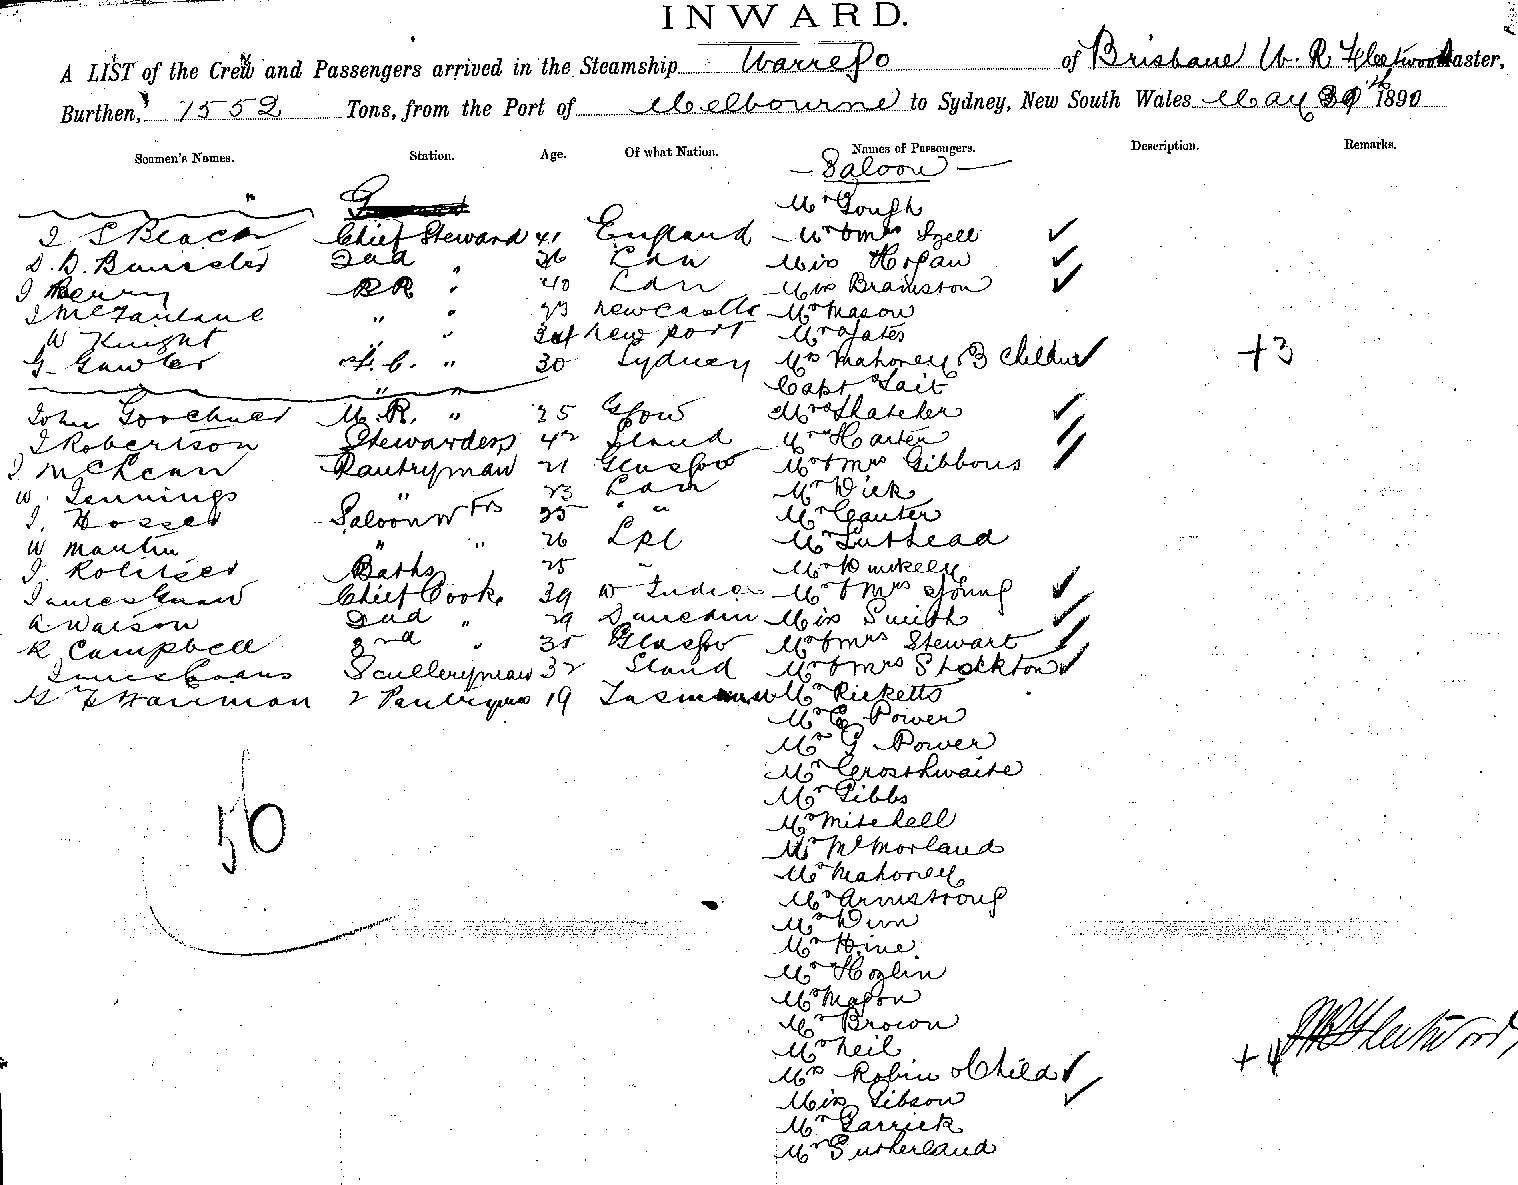 INWARD.
A LIST of the Crew and Passengers arrived in the Steamship Warrego of Brisbane W. R. Fleetwood Master,
Burthen, 1552 Tons, from the Port of Melbourne to Sydney, New South Wales May 1890
Seamen's Names. Station. Age. Of what Nation. Names of Passengers. Description. Remarks.
Saloon
Mr Gough
Beach Chief Steward 41 England Mr & Mrs
2nd " Lon Miss Hogan
Berry 40 Lon Miss Brainston
J McFarlane " " 23 Newcastle Mr Mason
W Knight " " New port Mr Yates
G. Gawler " 30 Sydney Mrs Mahoney 3 Children +3
" " Capt Tait
John M. R. " 25 Mrs Thatcher
J Robertson Stewardess 42 Mr Harten
J McLean Pantryman 21 Glasgow Mr & Mrs Gibbons
W. Jennings " 23 Lon Mr Dick
J. Saloon W 25 " " Mr Cauter
W Martin " " 26 LPL Mr Luthead
J. Baths 25 " Mr
James Chief Cook 39 W Indies Mr & Mrs Young
A Watson 2nd " 29 Miss Smith
R Campbell 3rd " 35 Glasgow Mr & Mrs Stewart
James Evans Sculleryman 32 Mr & Mrs Stockton
2 Pantryman 19 Mr Ricketts
Mr E Power
Mr G Power
Mr Crosthwaite
Mr Gibbs
Mr Mitchell
Mr McMorland
56
Mr Mahoney
Mr Armstrong
Mr Dinn
Mr Hine
Mr Hozlin
Mr Mason
Mr Brown
Mr Neil
Mrs Robin & Child +4 W R Fleetwood,
Miss Gibson
Mr Garrick
Mr Sutherland